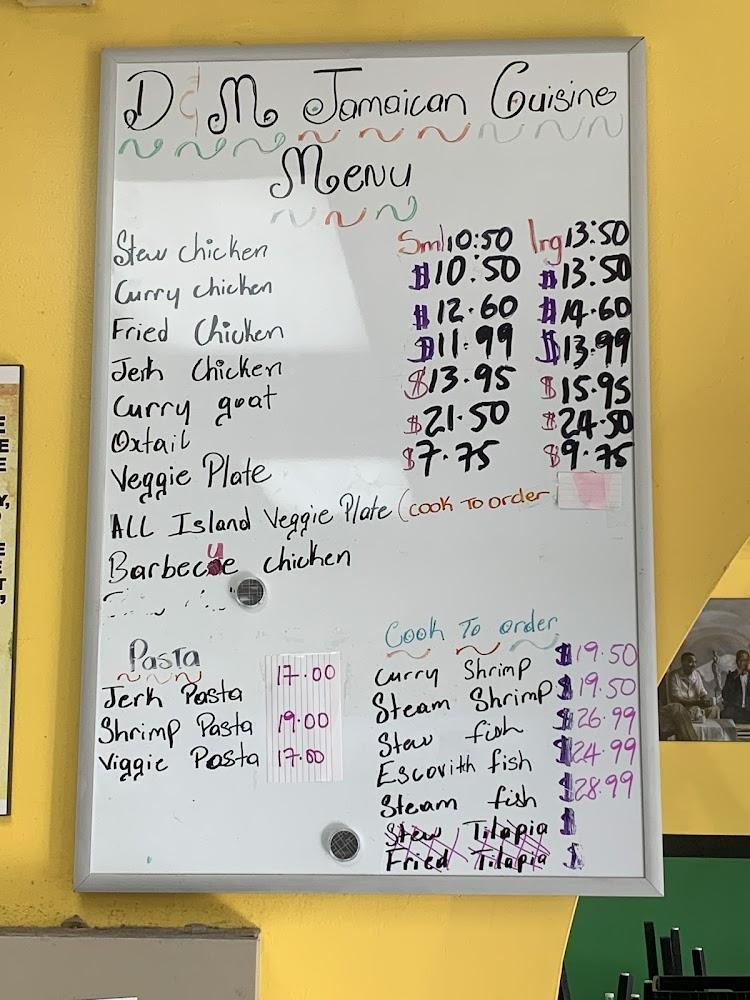 D & M Jamaican Cuisine
Menu
Stew chicken Sml 10:50 lrg 13:50
Curry chicken $10.50 $13.50
Fried Chicken $12.60 $14.60
Jerk Chicken $11.99 $13.99
Curry goat $13.95 $15.95
Oxtail $21.50 $24.50
Veggie Plate $7.75 $9.75
ALL Island Veggie Plate (cook To order
Barbecue chicken
Pasta
Jerk Pasta 17.00
Shrimp Pasta 19.00
Viggie Pasta 17.00
Cook To order
Curry Shrimp $19.50
Steam Shrimp $19.50
Stew fish $26.99
Escovith fish $24.99
Steam fish $28.99
Stew Tilapia $
Fried Tilapia $